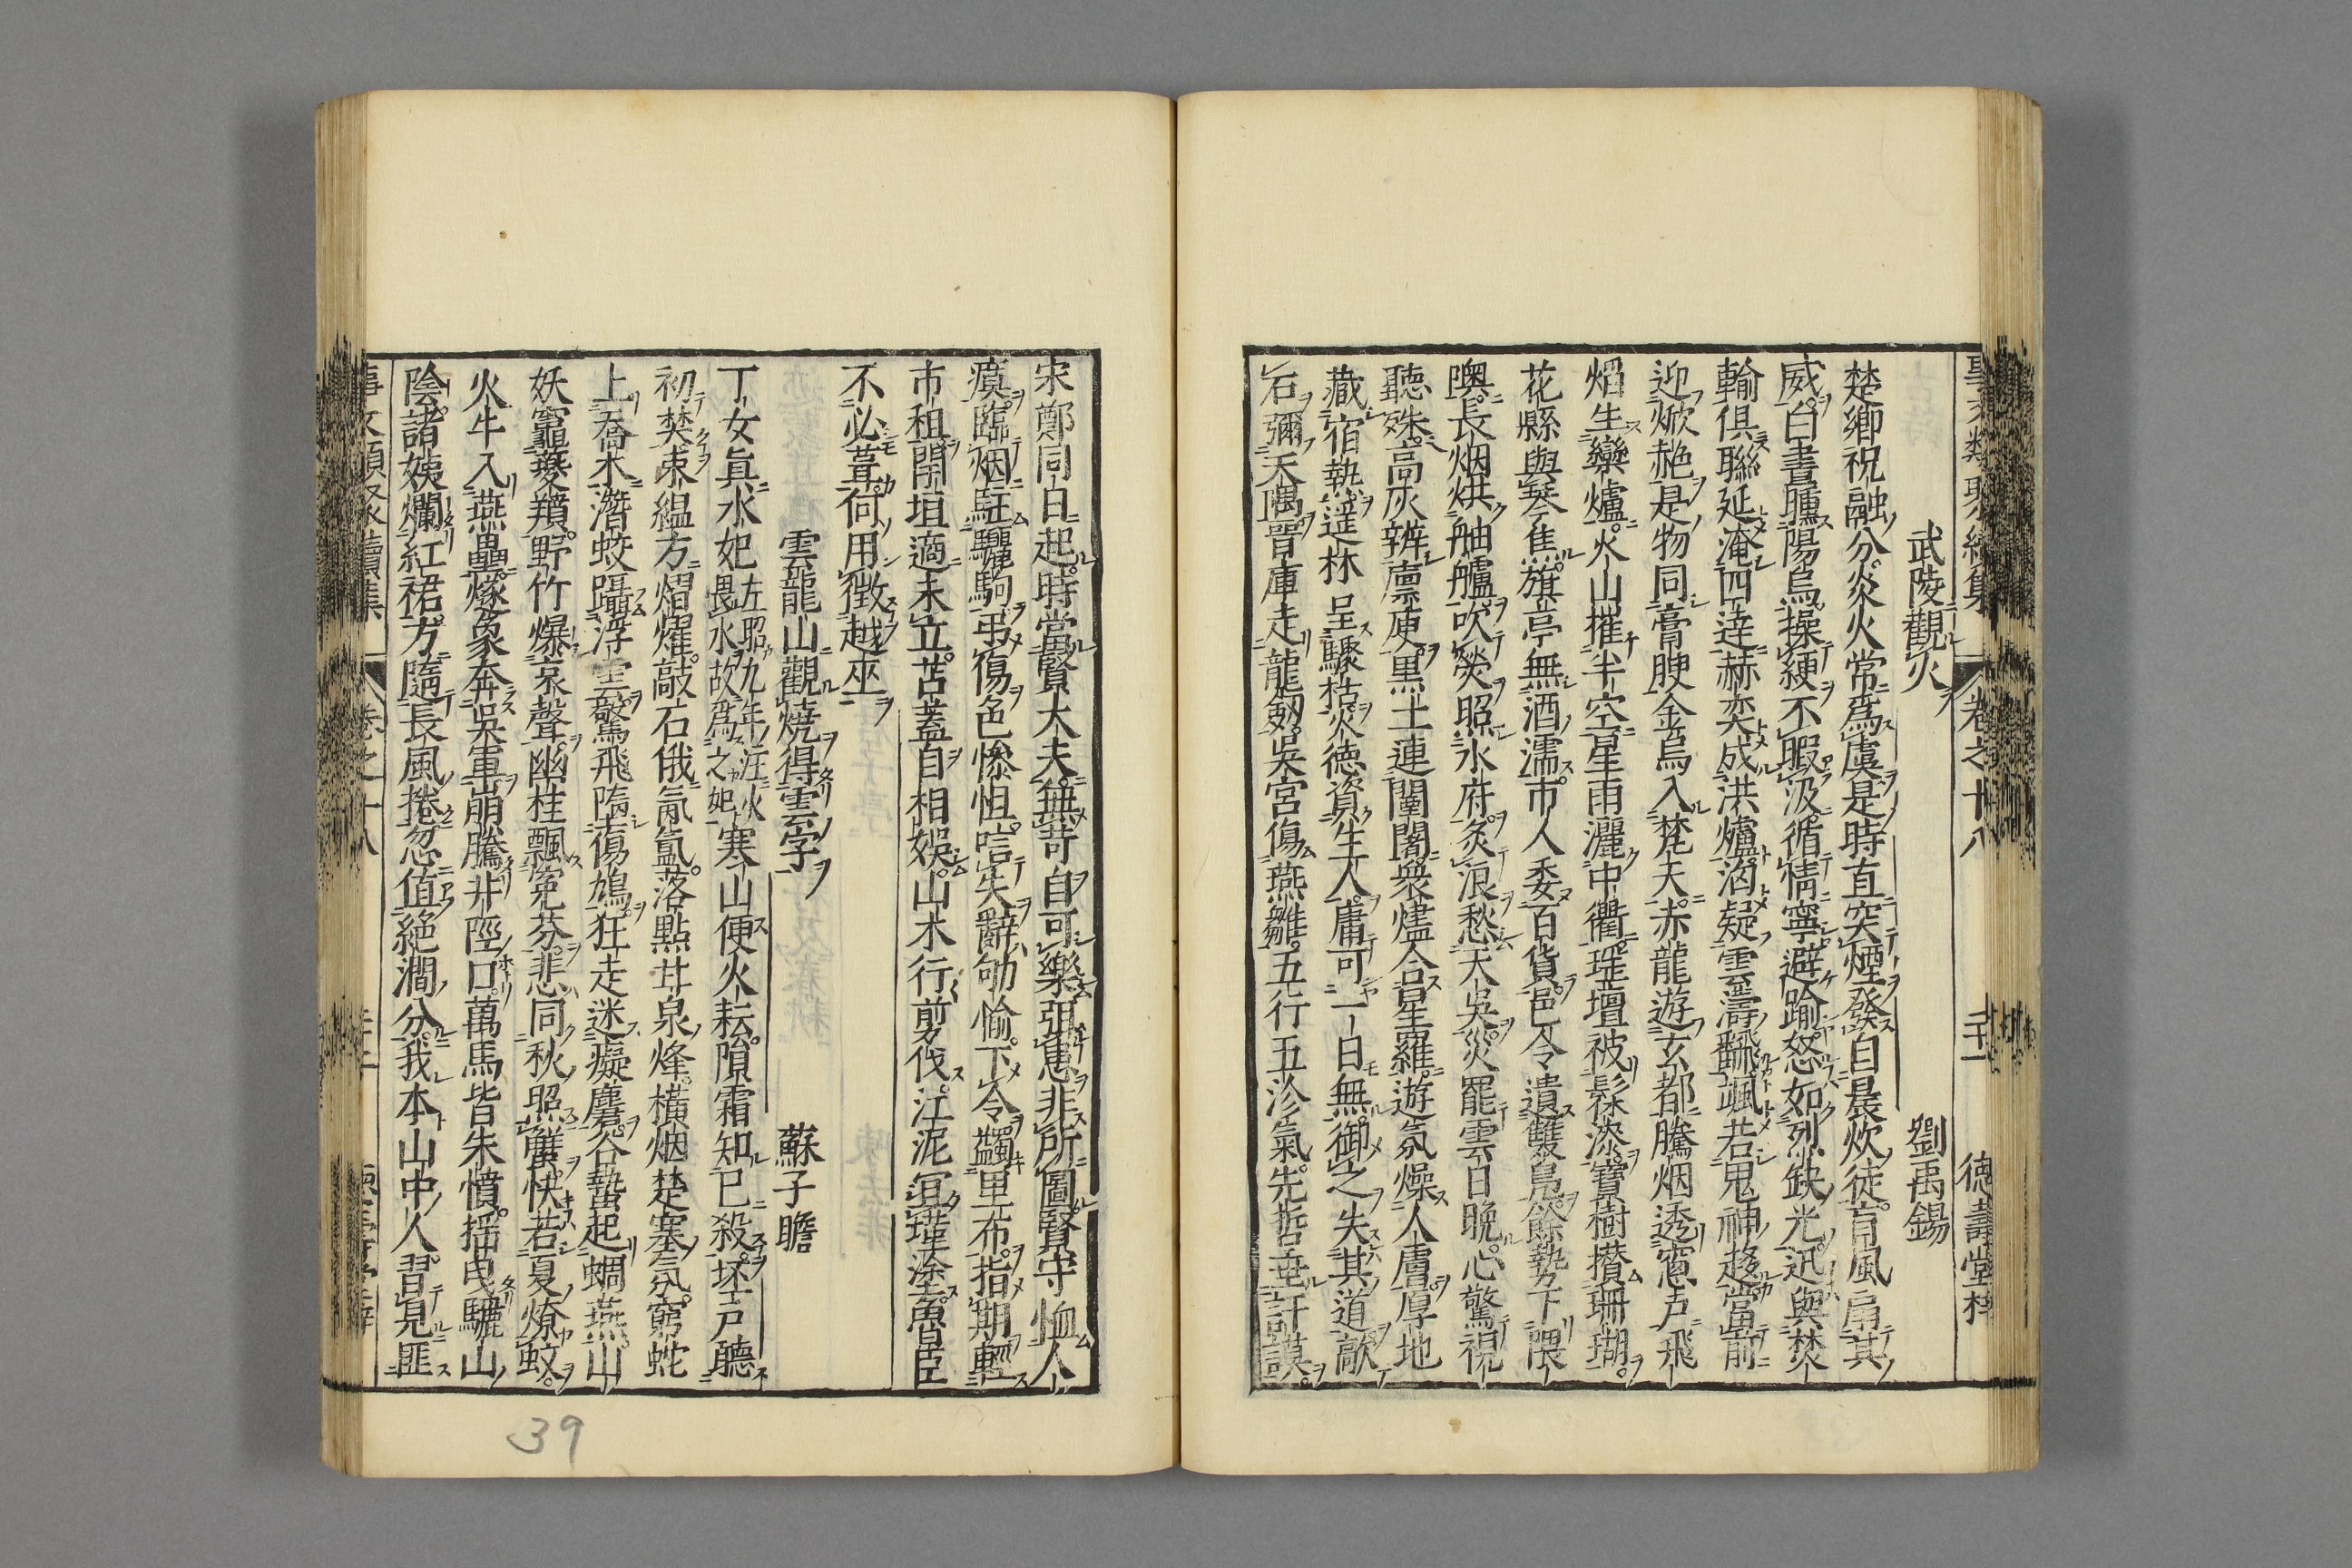 武陵觀火 劉禹錫
楚鄉祝融分炎火常爲虞是時直突煙發自晨炊徒盲風扇其
威白晝曛陽烏操綆不暇汲循情寧避踰怒如烈缺光迅與焚
輪俱聯延淹四達赫奕成洪爐漰疑雲濤飜颯若鬼神趍當前
迎焮赩是物同膏腴金烏入梵天赤龍遊玄都騰烟透窻戶飛
焰生欒爐火山摧半空星雨灑中衢瑤壇被髹漆寶樹攅珊瑚
花縣與琴焦旗亭無酒濡市人委百貨邑令遺雙鳧餘勢下隈
隩長烟烘舳艫吹熒照水府炙浪愁天吳災罷雲日晩心驚視
聽殊高灰辨廪庾黒土連闉闍衆燼合星羅遊氛爍人膚厚地
藏宿熱遥林呈驟枯火德資生人庸可一日無御之失其道敲
石彌天隅晉庫走龍劔吳宮傷燕雛五行五沴氣先哲垂訏謨
宋鄭同日起時當賢大夫無苛自可樂弭患非所圖賢守恤人
瘼臨烟駐驪駒弔傷色慘怛唁失辭劬愉下令蠲里布指期輕
市租閈垣適未立苫蓋自相娛山木行剪伐江泥宜墐塗魯臣
不必葺何用徴越巫
雲龍山觀燒得雲字 蘇子瞻
丁女眞水妃左昭九年注火畏水故爲之妃寒山便火耘隕霜知已殺坯戶聽
初焚束緼方熠燿敲石俄氤氳落點甘泉烽橫烟楚塞氛窮蛇
上喬木潛蛟躡浮雲驚飛墮傷鴆狂走迷癡麏谷蟄起蜩燕山
妖竄夔羵野竹爆哀聲幽桂飄寃芬悲同秋照蠏快若夏燎蚊
火牛入燕壘燧象奔吳軍崩騰井陘口萬馬皆朱幩揺曳驪山
陰諸姨爛紅裙方隨長風捲忽値絶澗分我本山中人習見匪
卷之十八
德壽堂梓
39